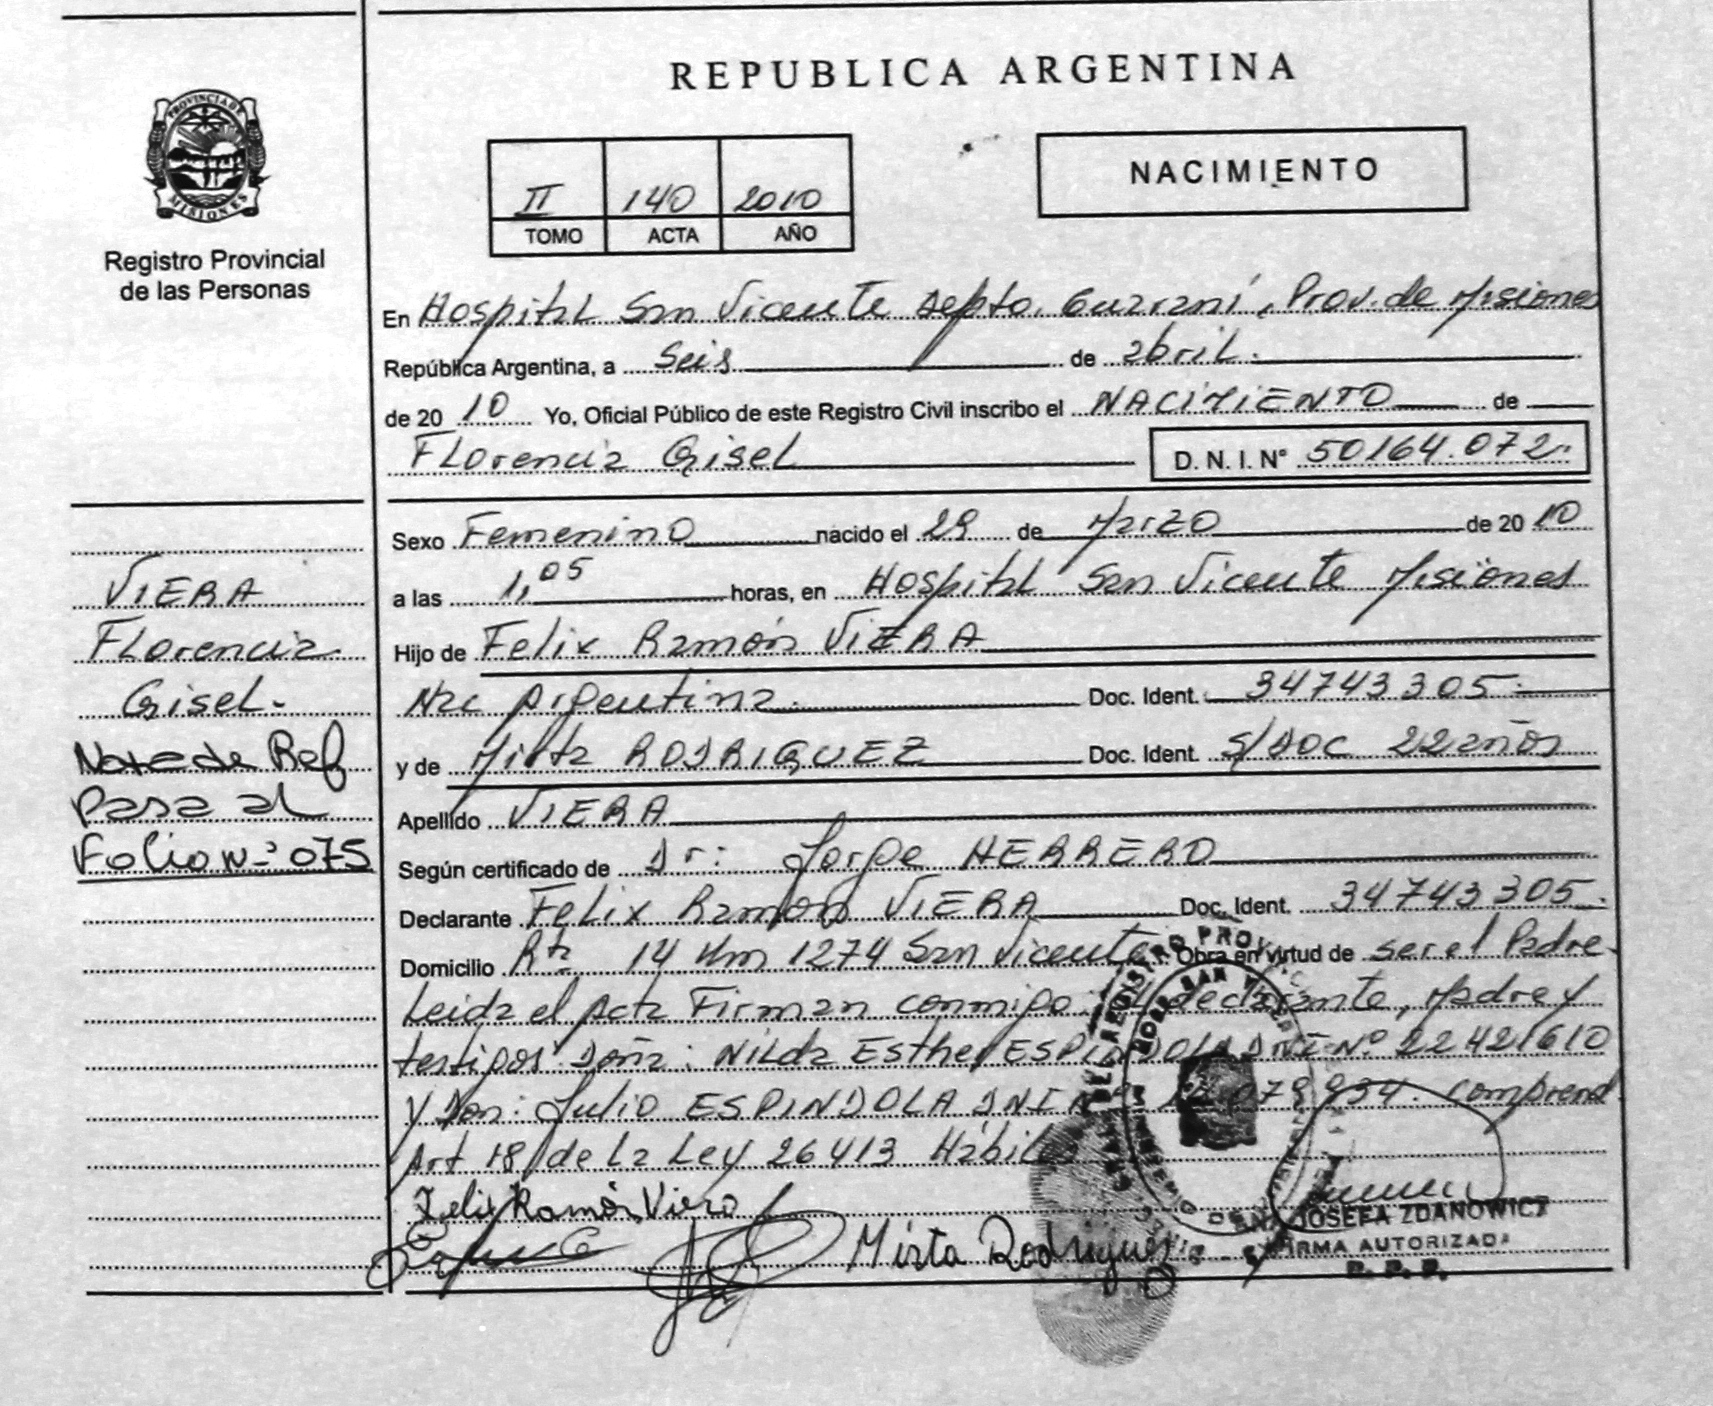 REPUBLICA ARGENTINA
PROVINCIA DE
MISIONES
Registro Provincial
de las Personas
II 140 2010
TOMO ACTA AÑO
NACIMIENTO
En Hospital San Vicente Depto. Guaraní, Prov. de Misiones
República Argentina, a Seis de abril.
de 20 10 Yo, Oficial Público de este Registro Civil inscribo el NACIMIENTO de
Florencia Gisel D. N. I. N° 50164.072
VIERA
Florencia
Gisel.-
Nota de Ref
Pasa al
Folio N-° 075
Sexo Femenino nacido el 29 de Marzo de 20 10
a las 1,05 horas, en Hospital San Vicente Misiones
Hijo de Felix Ramón VIERA
Nac Argentina. Doc. Ident. 34743305.
y de Mirta RODRIGUEZ Doc. Ident. S/DOC 22 años
Apellido VIERA
Según certificado de Dr: Jorge HERRERO
Declarante Felix Ramón VIERA Doc. Ident. 34743305.
Domicilio Rta 14 Km 1274 San Vicente Obra en virtud de ser el Padre.
Leida el Acta Firman conmigo: declarante, Madre y
testigos Doña: Nilda Esther ESPINDOLA DNI N° 22421610
y Don: Julio ESPINDOLA DNI comprend
Art 18 de la Ley 26413 Hábiles
Felix Ramón Viera
Mirta Rodrigues
JOSEFA ZDANOWICZ
FIRMA AUTORIZADA
R. P. P.